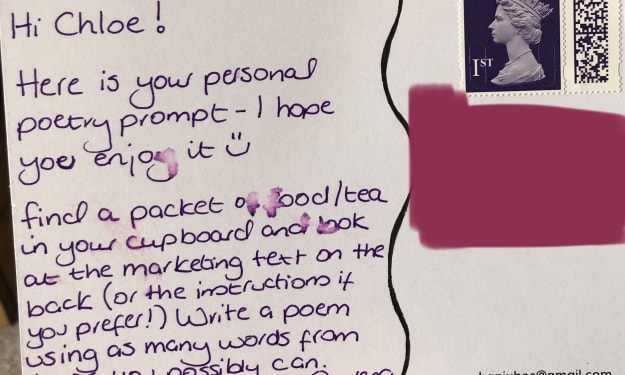 Hi Chloe!
Here is your personal
poetry prompt - I hope
you enjoy it
find a packet of food/tea
in your cupboard and look
at the marketing text on the
back (or the instructions if
you prefer!) Write a poem
using as many words from
possibly can.
1ST